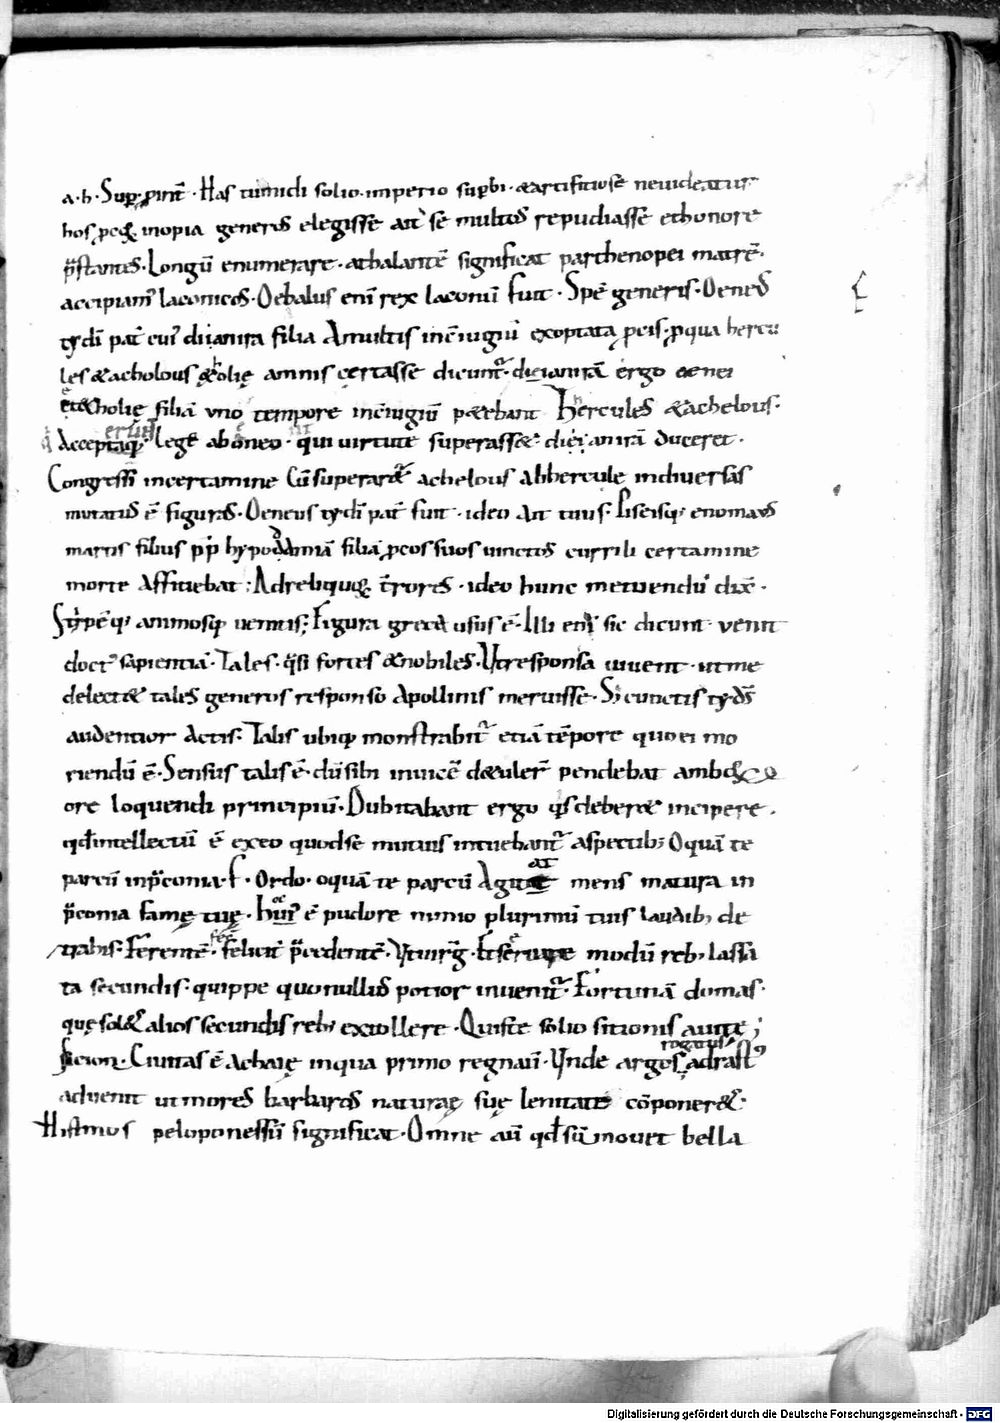 a·h·Sup̱·ꝑint̄· Has tumidi solio·imperio sup̱bi·&artifitiose neuideatur
hos inopia generos elegisse ait se multos repudiasse ethonore
p̄stantes·Longū enumerare·athalantē significat parthenopei matrē·
accipiam̄ laconicos·Oebalus enī rex laconū fuit·Spē generis·Oeneos
tydī pat̄ cuī diianira filia Amultis incōiugiū exoptata ꝓcis·ꝓqua hercu
les &acholous &olię amnis certasse dicunt̄·deianirā ergo oenei
et&holię filiā uno tempore incōiugiū pet&bant Hercules &achelous·
Acceptaq; lege aboneo·qui uirtute superass& deianirā duceret·
Congressi incertamine Cū superar& achelous abhercule indiuersas
mutatus ē figuras·Oeneus tydī pat̄ fuit·ideo ait tuus·Piseisq; enomaos
martis filius pp̄ hypodamiā filiā ꝓcos suos uinctos currili certamine
morte afficiebat; Adreliquos t̄rores·ideo hunc metuendū dix̄·
Styrpēq; animosiq; uenitis; Figura greca usus ē·Illi enī sic dicunt uenit
doct sapientiā·Tales·q̄si fortes &nobiles·Utresponsa iuuent·utme
delect& tales generos responso apollinis meruisse·Si cunctis tyd̄s
audentior actis·Talis ubiq; monstrabit̄ etiā tēpore quoei mo
riendū ē·Sensus talis ē·dū sibi inuicē d&uler̄ pendebat ambo&
ore loquendi principiū·Dubitabant ergo q̄s deber& incipere·
qđintellectū ē exeo quodse mutuis intuebant̄ aspectib; Oquā te
parcū inp̄conia·f·Ordo·oquā te parcū Agit&
at
mens matura in
p̄conia famę tuę·huī ē pudore nimio plurimū tuis laudib; de
trahis·Ferentē·felicit̄ p̄cedentē· modū reb; lassa
ta secundis·quippe quonullus potior inuenit̄·Fortunā domas·
quę sol& alios secundis reb; extollere·Quiste solio sitionis auitę;
sicion·Ciuitas ē achaię inqua primo regnauī·Unde argos
rogatus
adrastꝰ
aduenit utmores barbaros naturae suę lenitate cōponer&·
Histmos peloponessū significat·Omne aū qđ sū mouet bella
Digitalisierung gefördert durch die Deutsche Forschungsgemeinschaft - DFG